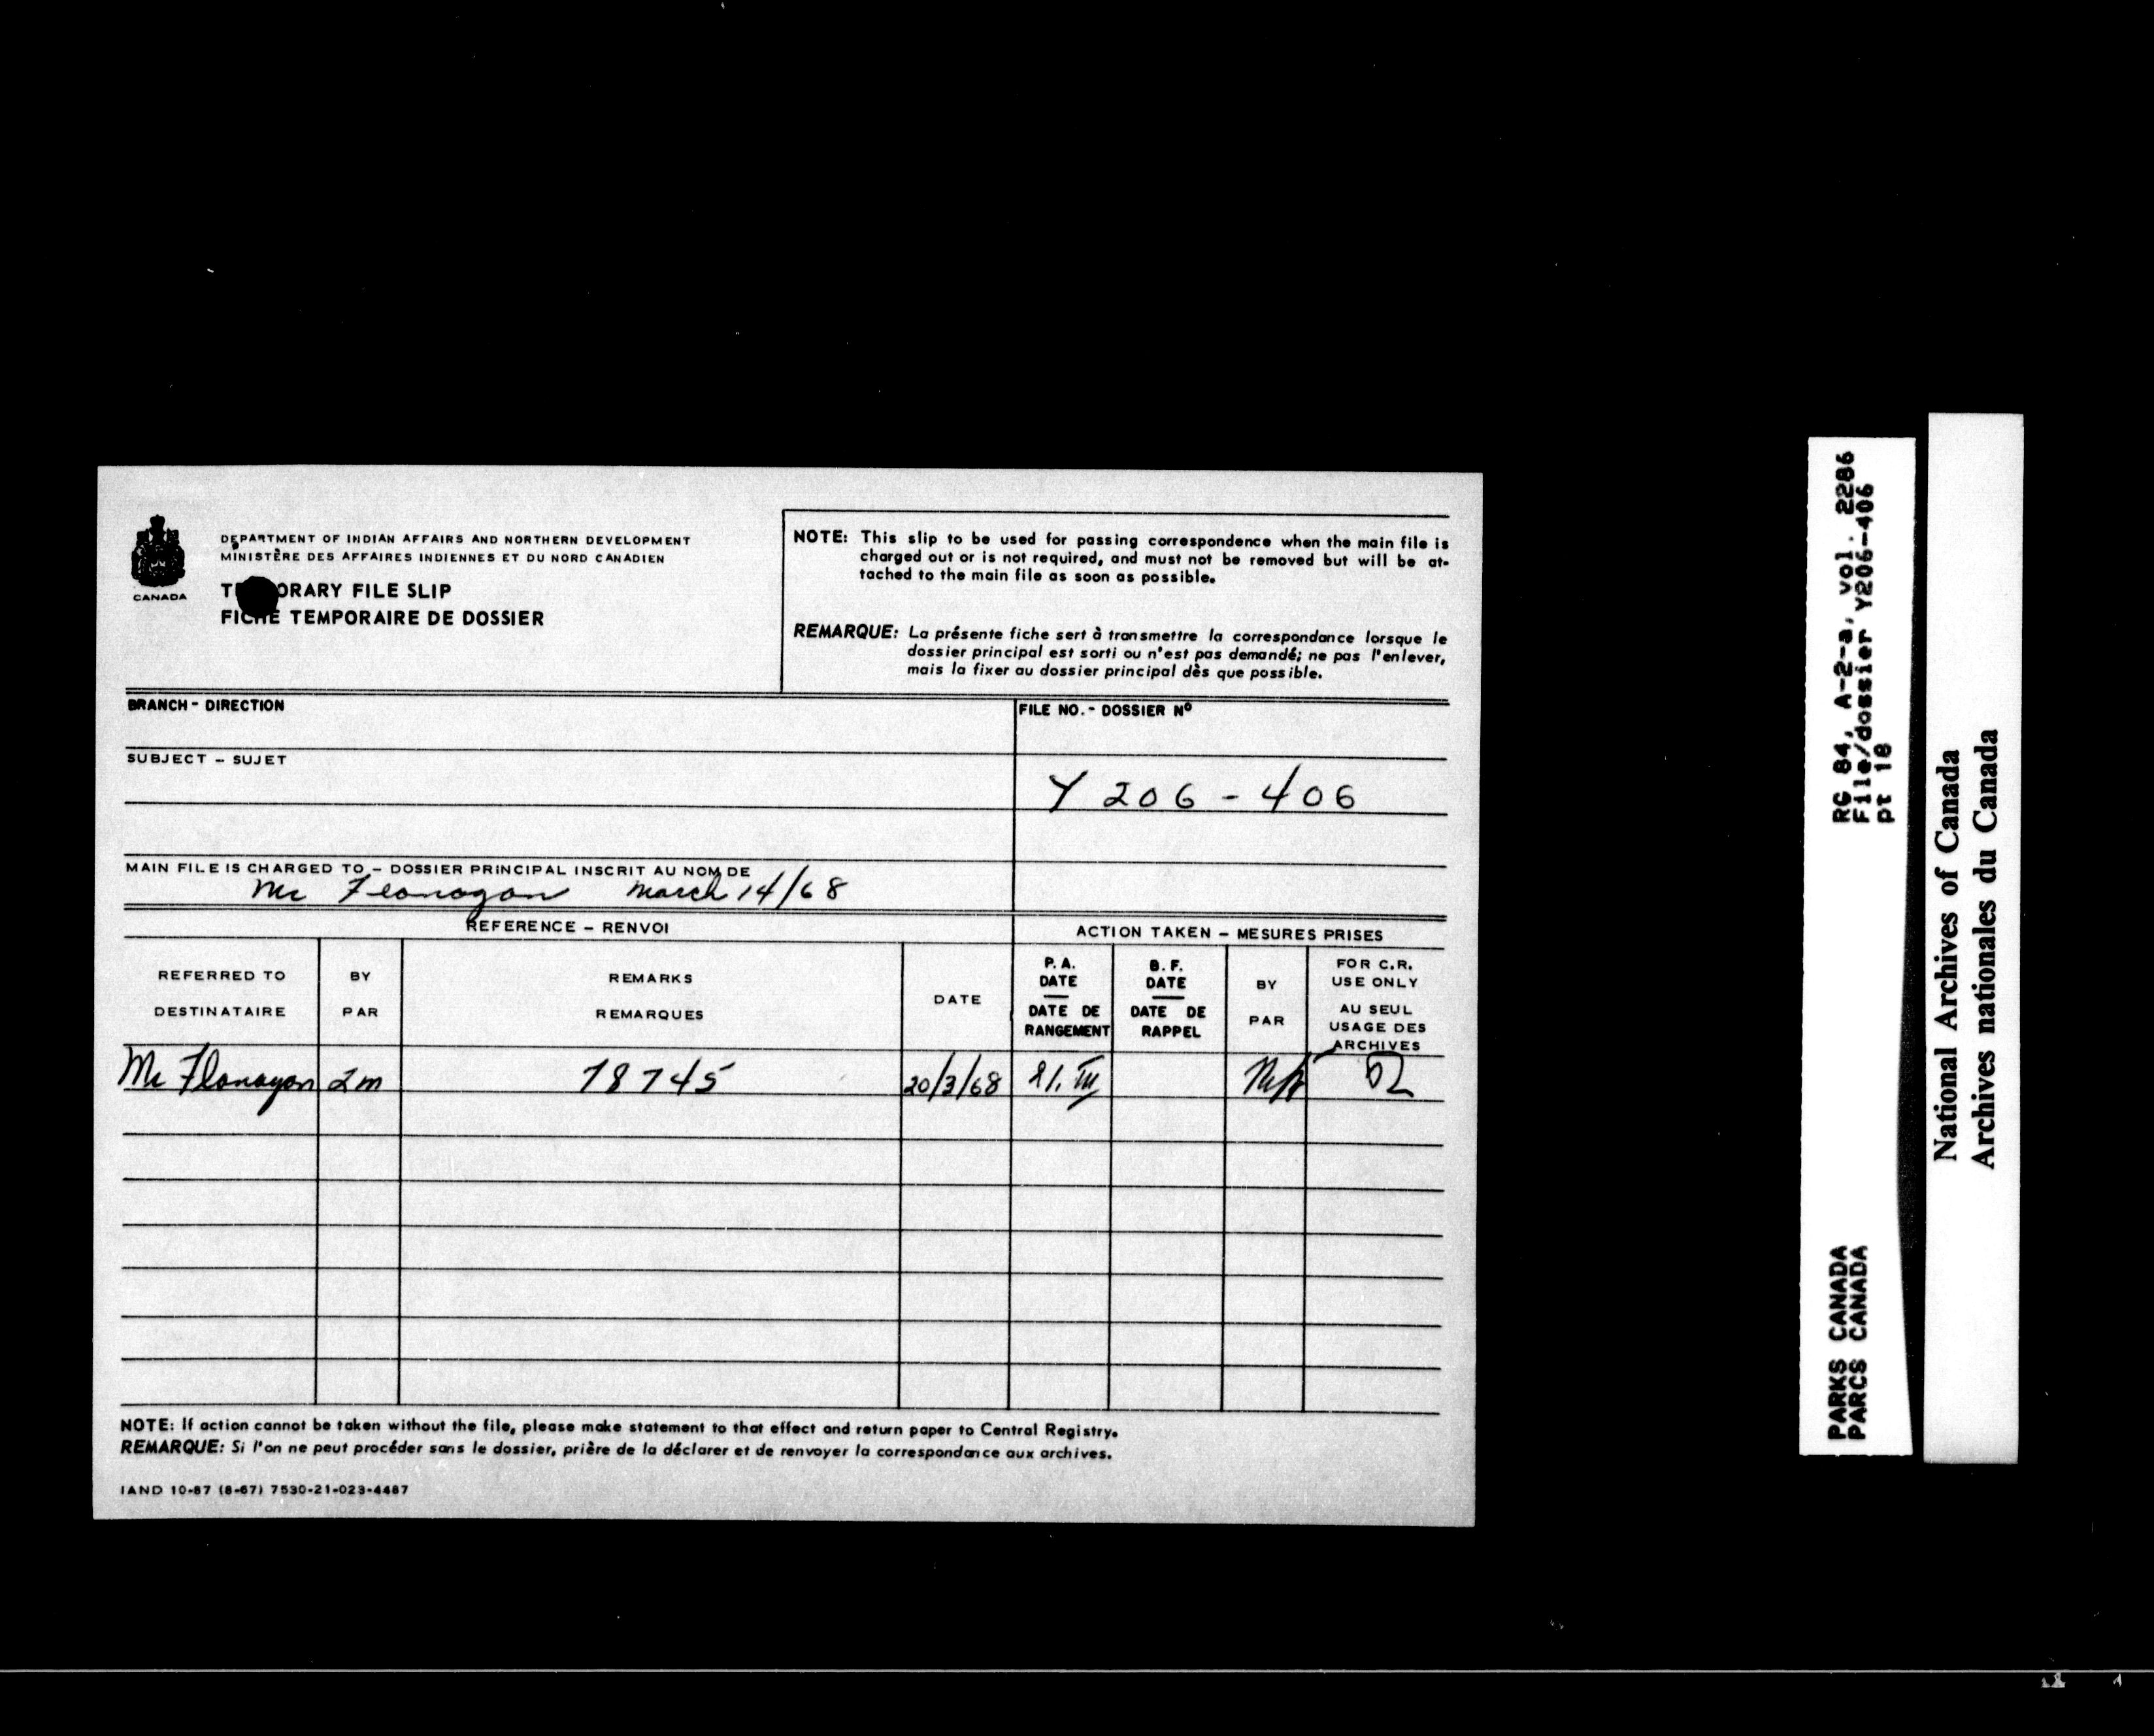 CANADA
DEPARTMENT OF INDIAN AFFAIRS AND NORTHERN DEVELOPMENT
MINISTÈRE DES AFFAIRES INDIENNES ET DU NORD CANADIEN
ORARY FILE SLIP
FICHE TEMPORAIRE DE DOSSIER
NOTE: This slip to be used for passing correspondence when the main file is
charged out or is not required, and must not be removed but will be at-
tached to the main file as soon as possible.
REMARQUE: La présente fiche sert à transmettre la correspondance lorsque le
dossier principal est sorti ou n'est pas demandé; ne pas l'enlever,
mais la fixer au dossier principal dès que possible.
BRANCH - DIRECTION
FILE NO. - DOSSIER Nº
SUBJECT - SUJET
Y 206-406
MAIN FILE IS CHARGED TO - DOSSIER PRINCIPAL INSCRIT AU NOM DE
Mr Flanagan March 14/68
REFERENCE - RENVOI
ACTION TAKEN - MESURES PRISES
REFERRED TO
DESTINATAIRE
BY
PAR
REMARKS
REMARQUES
DATE
P.A.
DATE
DATE DE
RANGEMENT
B.F.
DATE
DATE DE
RAPPEL
BY
PAR
FOR C.R.
USE ONLY
AU SEUL
USAGE DES
ARCHIVES
Mr Flanagan 2m 78745 20/3/68 21.III
NOTE: If action cannot be taken without the file, please make statement to that effect and return paper to Central Registry.
REMARQUE: Si l'on ne peut procéder sans le dossier, prière de la déclarer et de renvoyer la correspondance aux archives.
IAND 10-87 (8-67) 7530-21-023-4487
RG 84, A-2-a, vol. 2286
File/dossier Y206-406
pt 18
PARKS CANADA
PARCS CANADA
National Archives of Canada
Archives nationales du Canada